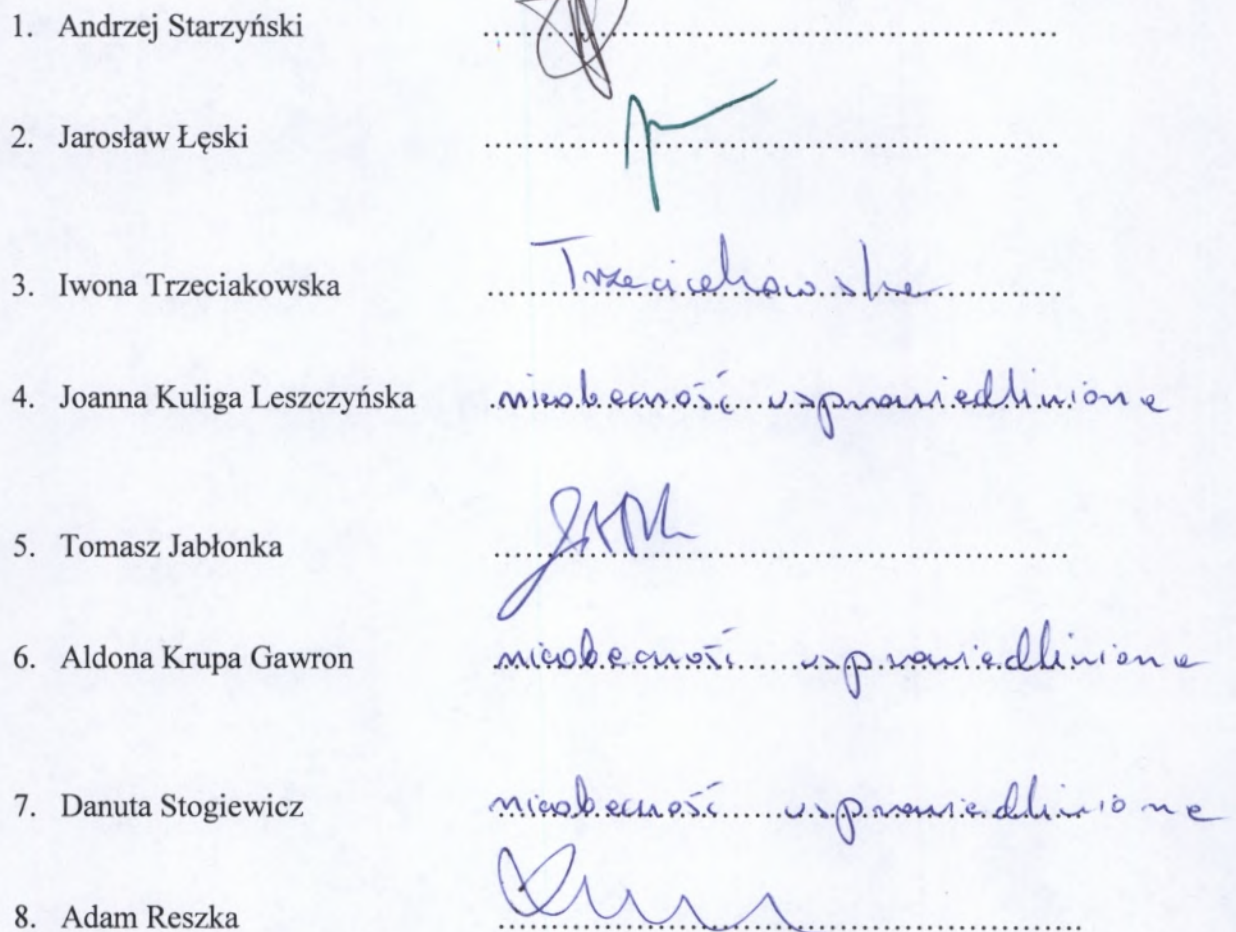 1. Andrzej Starzyński
2. Jarosław Łęski
3. Iwona Trzeciakowska Trzeciakowska
4. Joanna Kuliga Leszczyńska nieobecność usprawiedliwiona
5. Tomasz Jabłonka
6. Aldona Krupa Gawron nieobecność usprawiedliwiona
7. Danuta Stogiewicz nieobecność usprawiedliwiona
8. Adam Reszka